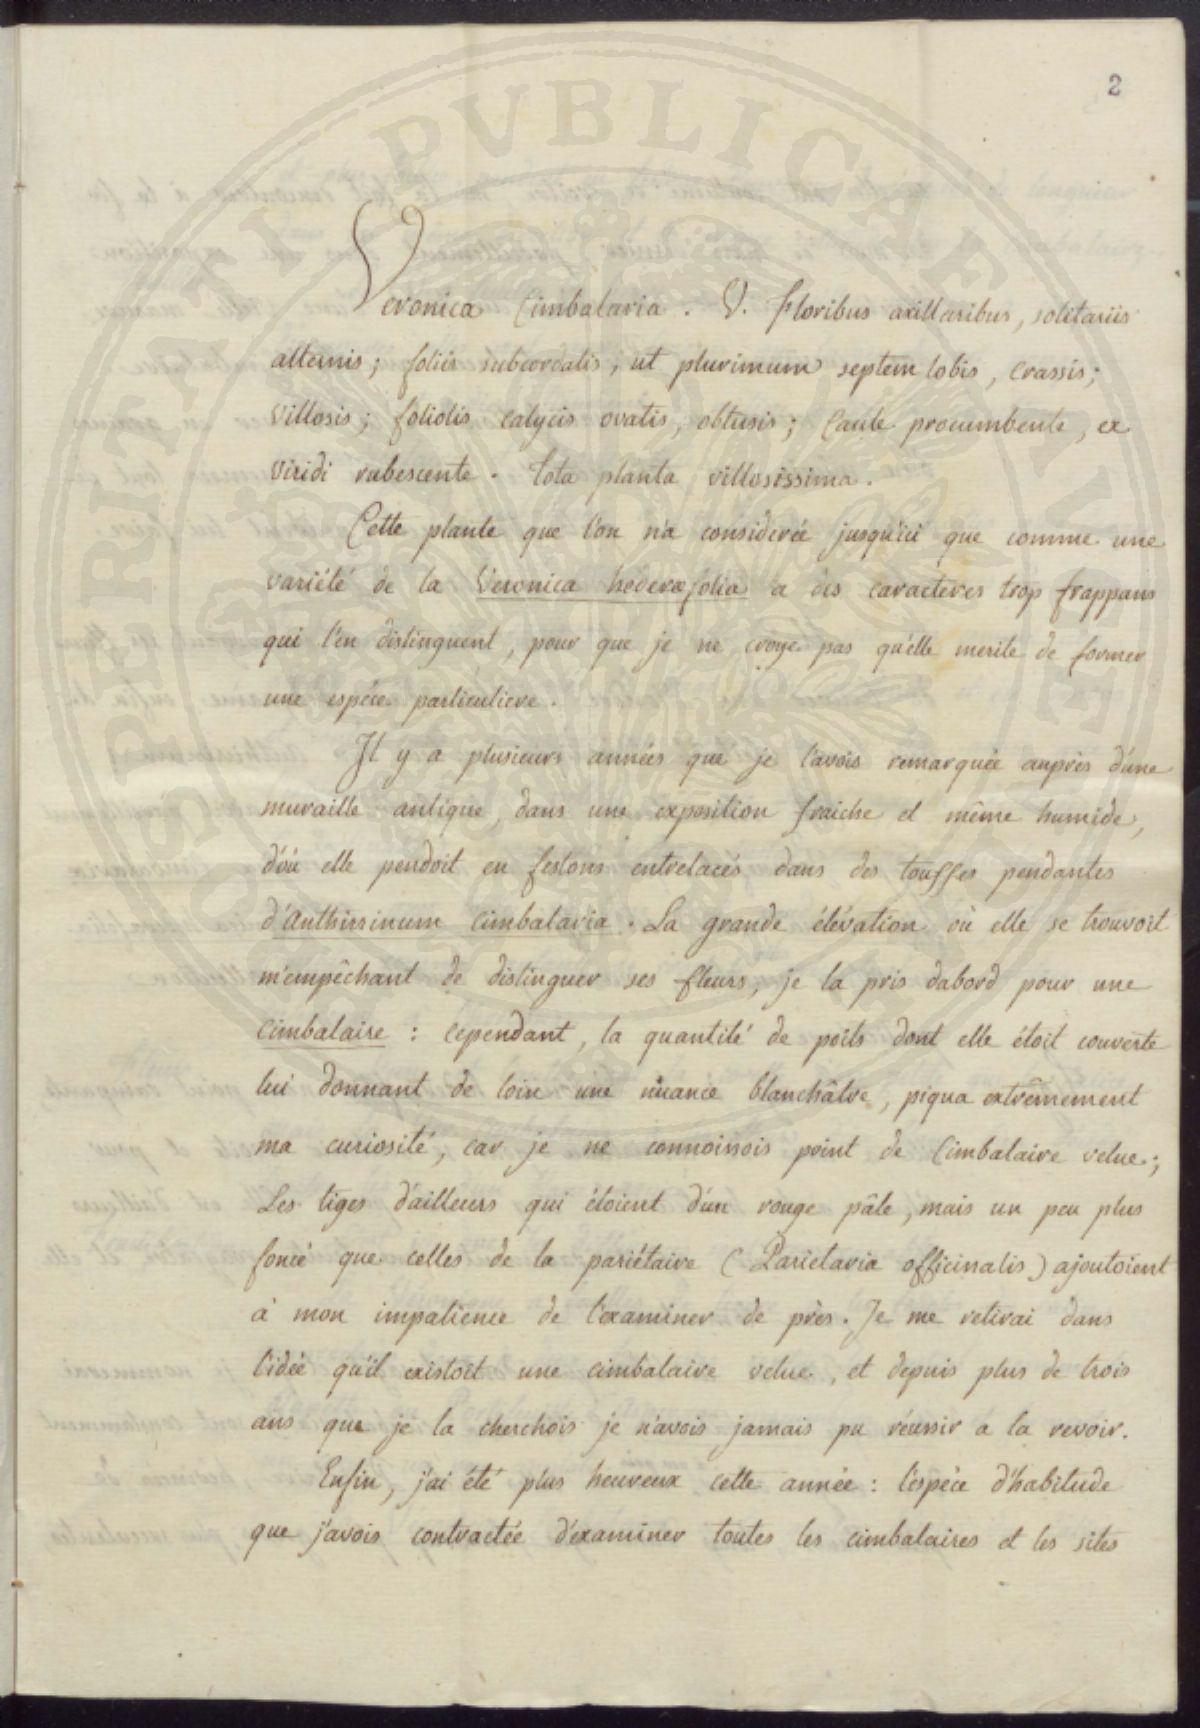 2
Veronica Cimbalaria. V. floribus axillaribus, solitariis
alternis; foliis subcordatis, ut plurimum septem lobis, crassis;
villosis; foliolis calycis ovatis, obtusis; caule procumbente, ex
viridi rubescente. tota planta villosissima.
Cette plante que l'on n'a considerée jusqu'ici que comme une
variété de la Veronica hederæfolia a des caracteres trop frappans
qui l'en distinguent, pour que je ne croye pas qu'elle merite de former
une espéce particuliere.
Il y a plusieurs années que je l'avois remarquée auprès d'une
muraille antique, dans une exposition fraiche et même humide,
d'où elle pendoit en festons entrelacés dans des touffes pendantes
d'Anthirrinum cimbalaria. La grande élévation où elle se trouvoit
m'empêchant de distinguer ses fleurs, je la pris d'abord pour une
cimbalaire : cependant, la quantité de poils dont elle étoit couverte
lui donnant de loin une nuance blanchâtre, piqua extrêmement
ma curiosité, car je ne connoissois point de Cimbalaire velue;
Les tiges d'ailleurs qui étoient d'un rouge pâle, mais un peu plus
foncé que celles de la pariétaire (Parietaria officinalis) ajoutoient
à mon impatience de l'examiner de près. Je me retirai dans
l'idée qu'il existoit une cimbalaire velue, et depuis plus de trois
ans que je la cherchois je n'avois jamais pu réussir a la revoir.
Enfin, j'ai été plus heureux cette année : l'espéce d'habitude
que j'avois contractée d'examiner toutes les cimbalaires et les sites
PROSPERITATI PVBLICAE